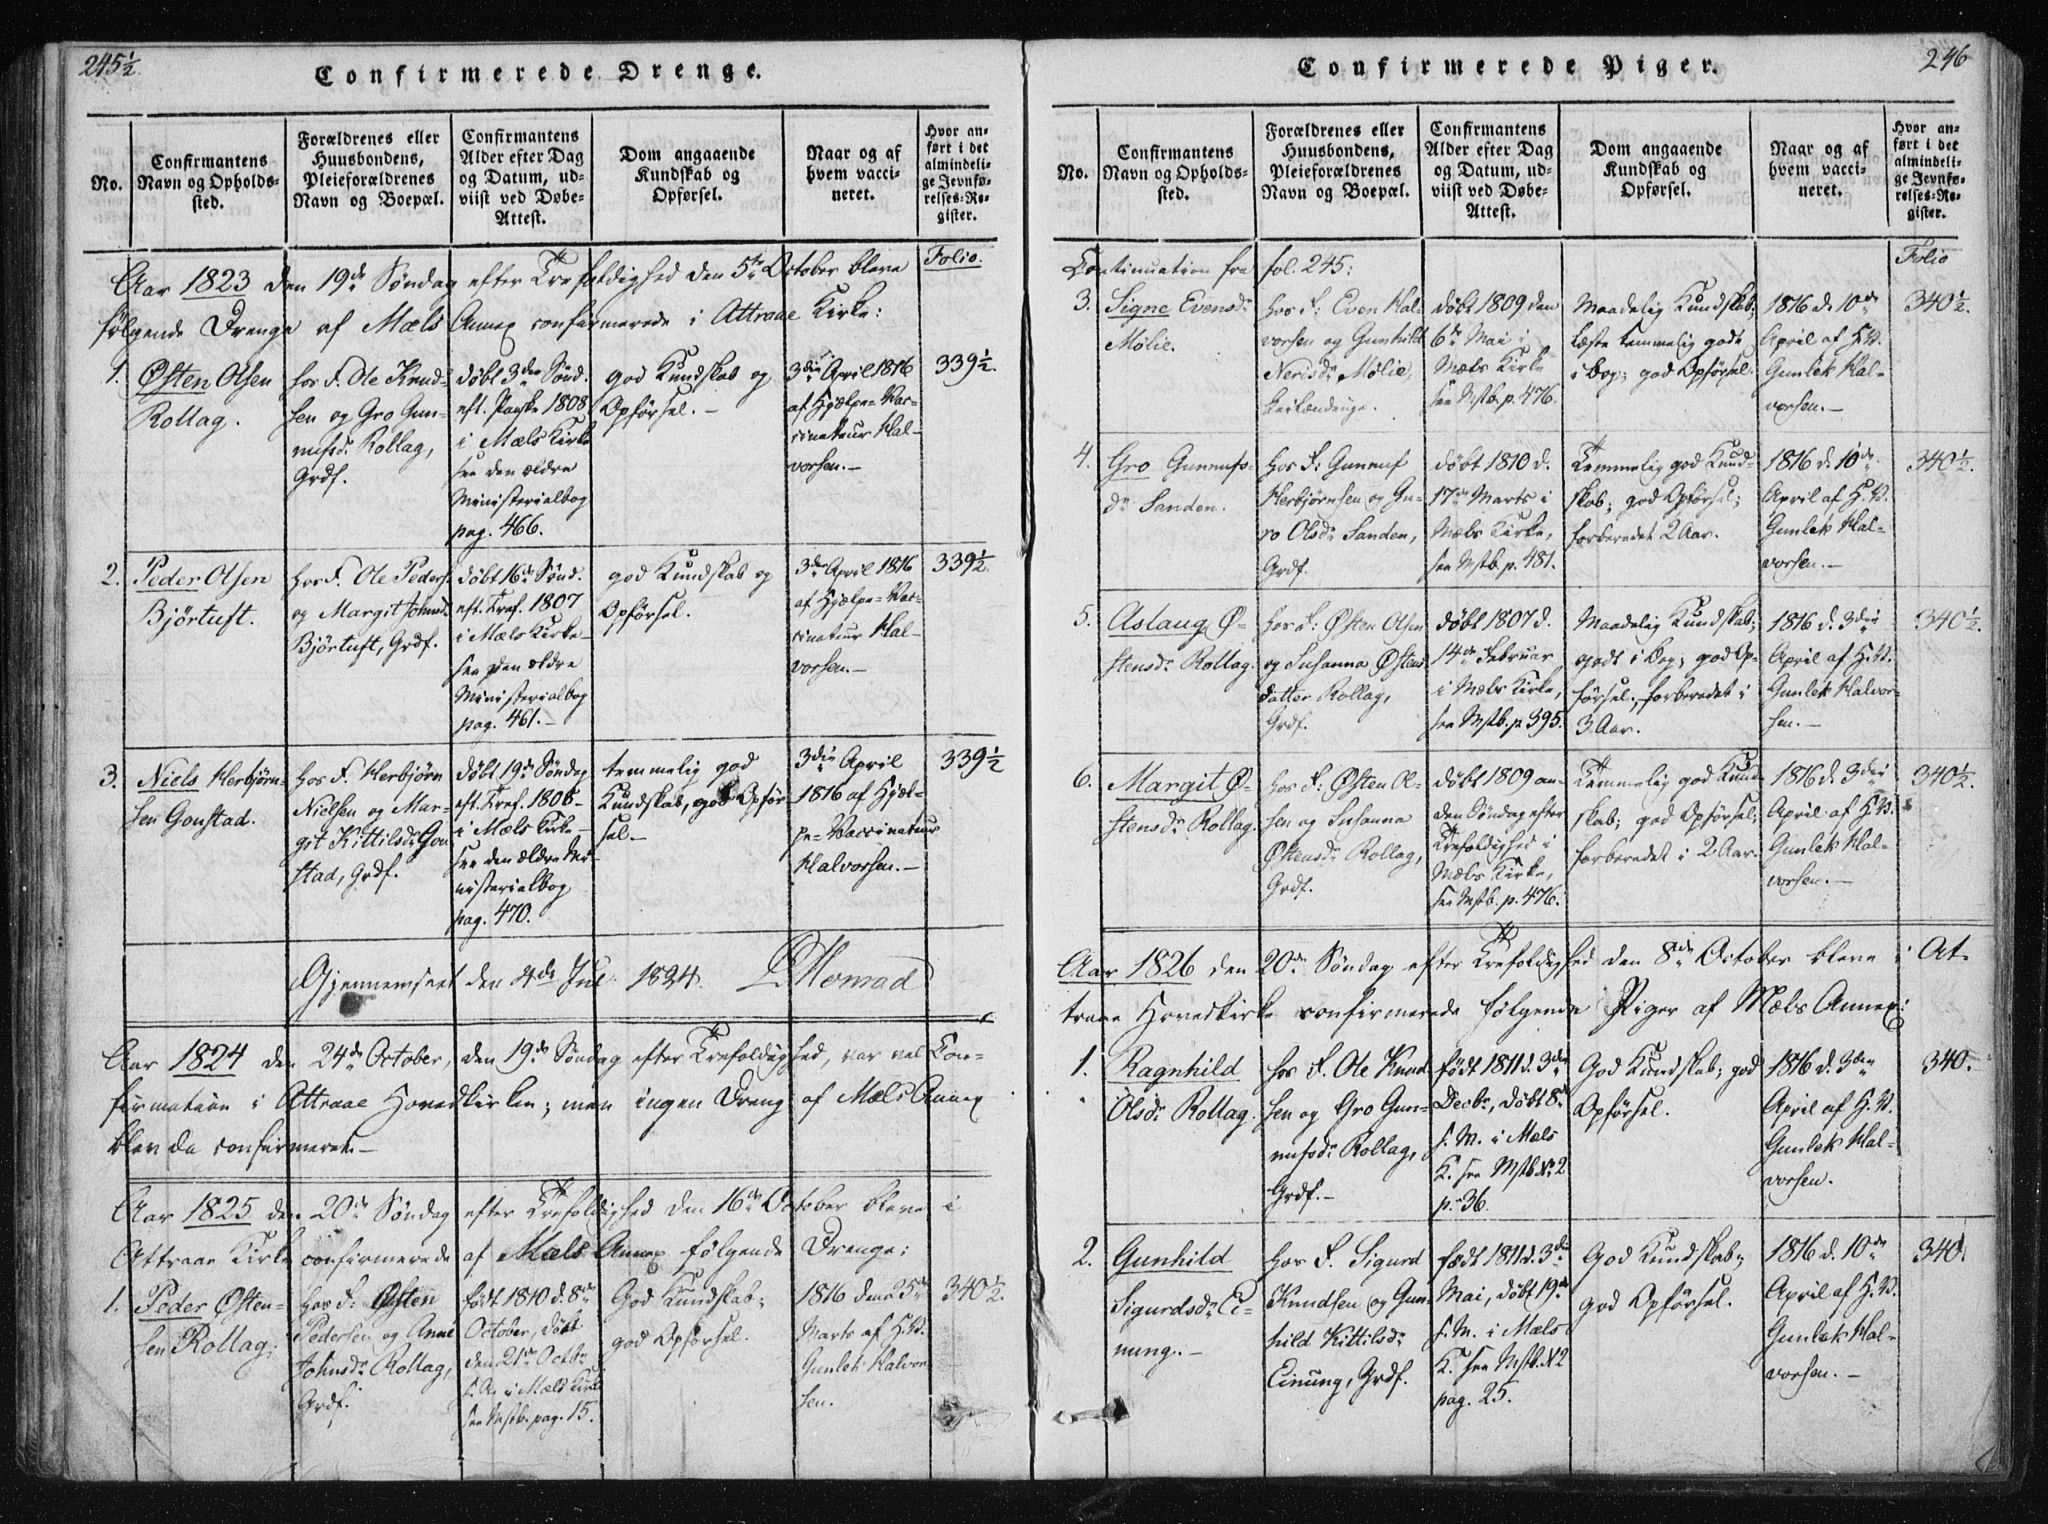 245½
Confirmerede Drenge.
No.
Confirmantens
Navn og Opholds-
sted.
Forældrenes eller
Huusbondens,
Pleieforældrenes
Navn og Boepæl.
Confirmantens
Alder efter Dag
og Datum, ud-
viist ved Døbe-
Attest.
Dom angaaende
Kundskab og
Opførsel.
Naar og af
hvem vacci-
neret.
Hvor an-
ført i det
almindeli-
ge Jevnfø-
relses-Re-
gister.
Folio.
Aar 1823 den 19de Søndag efter Trefoldighed den 5te October bleve
følgende Drenge af Mæls Annex confirmerede i Attraae Kirke:
1.
Østen Olsen
Rollag.
hos F. Ole Knud-
sen og Gro Gun-
nufsdr Rollag,
Grdf.
døbt 3den Sønd.
eft. Paaske 1808
i Mæls Kirke
see den ældre
Ministerialbog
pag. 466.
god Kundskab og
Opførsel. –
3die April 1816
af Hjælpe-Vac-
cinateur Hal-
vorsen. –
339½.
2.
Peder Olsen
Bjørtuft.
hos F. Ole Peders.
og Margit Johnsd.
Bjørtuft, Grdf.
døbt 16de Sønd.
eft. Tref. 1807
i Mæls Kirke –
see den ældre
Ministerialbog
pag. 461. –
god Kundskab og
Opførsel.
3die April 1816
af Hjælpe-Vac-
cinateur Hal-
vorsen. –
339½.
3.
Niels Herbjørn-
sen Gonstad.
hos F. Herbjørn
Nielsen og Mar-
git Kittilsdr Gon
stad, Grdf.
døbt 19de Søndag
eft. Tref. 1808 –
i Mæls Kirke –
see den ældre Mi-
nisterialbog
pag. 470.
temmelig god
Kundskab, god Opfør
sel. –
3die April
1816 af Hjæl-
pe-Vaccinateur
Halvorsen. –
339½
Gjennemseet den 4de Juli 1824. Monrad
Aar 1824 den 24de October, den 19de Søndag efter Trefoldighed, var vel Con-
firmation i Attraae Hovedkirken; men ingen Dreng af Mæls Annex
blev da confirmeret. –
Aar 1825 den 20de Søndag efter Trefoldighed den 16de October bleve i
Attraae Kirke confirmerede af Mæls Annex følgende Drenge:
1.
Peder Østen-
sen Rollag.
hos F. Østen
Pedersen og Anne
Johnsdr Rollag,
Grdf.
født 1810 d. 8de
October, døbt
den 21de Octbr
s. A. i Mæls Kirke
see Mstb. pag. 15.
God Kundskab;
god Opførsel.
1816 den 25de
Marts af H. V.
Gunlek Halvor
sen.
340½.
246
Confirmerede Piger.
No.
Confirmantens
Navn og Opholds-
sted.
Forældrenes eller
Huusbondens,
Pleieforældrenes
Navn og Boepæl.
Confirmantens
Alder efter Dag
og Datum, ud-
viist ved Døbe-
Attest.
Dom angaaende
Kundskab og
Opførsel.
Naar og af
hvem vacci-
neret.
Hvor an-
ført i det
almindeli-
ge Jevnfø-
relses-Re-
gister.
Folio
Continuation fra fol. 245:
3.
Signe Evensdr
Mølie.
hos F: Even Hal-
vorsen og Gunhild
Nerisdr Mølie,
døbt 1809 den
6te Mai i
Mæls Kirke
see Mstb. p. 476.
Maadelig Kundskab;
læste temmelig godt
i Bog; god Opførsel.
1816 d. 10de
April af H. V.
Gunlek Hal-
vorsen. –
340½.
4.
Gro Gunnufs-
dr Sanden.
hos F: Gunnuf
Herbjørnsen og Gu-
ro Olsdr Sanden,
Grdf.
døbt 1810 d.
17de Marts i
Mæls Kirke,
see Mstb. p. 481.
Temmelig god Kund-
skab; god Opførsel;
forberedet 2 Aar.
1816 d. 10de
April af H. V.
Gunlek Hal-
vorsen. –
340½.
5.
Aslaug Ø-
stensdr Rollag.
hos F: Østen Olsen
og Susanna Østens
datter Rollag,
Grdf.
døbt 1807 d.
14de Februar
i Mæls Kirke,
see Mstb. p. 395.
Maadelig Kundskab;
godt i Bog; god Op-
førsel; forberedet i
3 Aar.
1816 d. 3die
April af H. V.
Gunlek Halvor-
sen. –
340½.
6.
Margit Ø-
stensdr Rollag.
hos F: Østen Ol-
sen og Susanna
Østensdr Rollag,
Grdf.
døbt 1809 an-
den Søndag efter
Trefoldighed i
Mæls Kirke,
see Mstb. p. 476.
Temmelig god Kund
skab; god Opførsel;
forberedet i 2 Aar.
1816 d. 3die
April af H. V.
Gunlek Hal-
vorsen. –
340½.
Aar 1826 den 20de Søndag efter Trefoldighed den 8de October bleve i At-
traae Hovedkirke confirmerede følgende Piger af Mæls Annex:
1.
Ragnhild
Olsdr Rollag.
hos F. Ole Knud
sen og Gro Gun-
nufsdr Rollag,
Grdf. –
født 1811 d. 3die
Decbr, døbt 8de
s. M. i Mæls
K. see Mstb. No 2
p. 36.
God Kundskab; god
Opførsel.
1816 d. 3die
April af H. V.
Gunlek Hal-
vorsen.
340.
2.
Gunhild
Sigurdsdr Ei-
nung. –
hos F. Sigurd
Knudsen og Gun-
hild Kittilsdr
Einung, Grdf.
født 1811 d. 3die
Mai, døbt 19de
s. M. i Mæls
K. see Mstb. No 2
pag. 25.
God Kundskab;
god Opførsel.
1816 d. 10de
April af H. V.
Gunlek Hal-
vorsen. –
340.